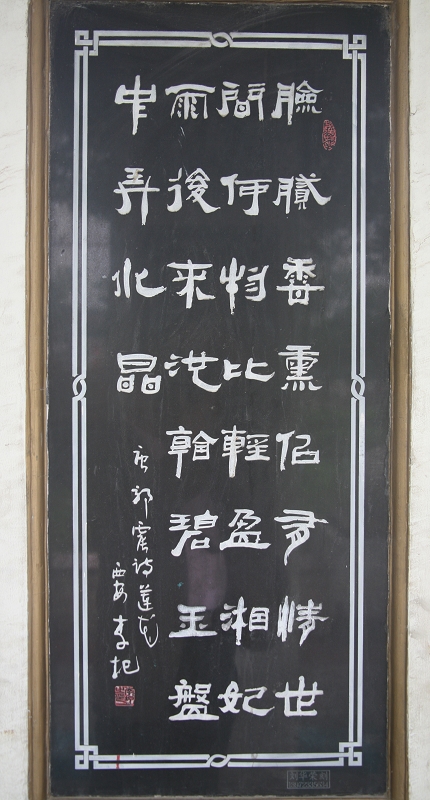 臉膩香熏佀有情世
間何物比輕盈湘妃
雨後來池看碧玉盤
中弄水晶
唐郭震诗蓮花
西安李